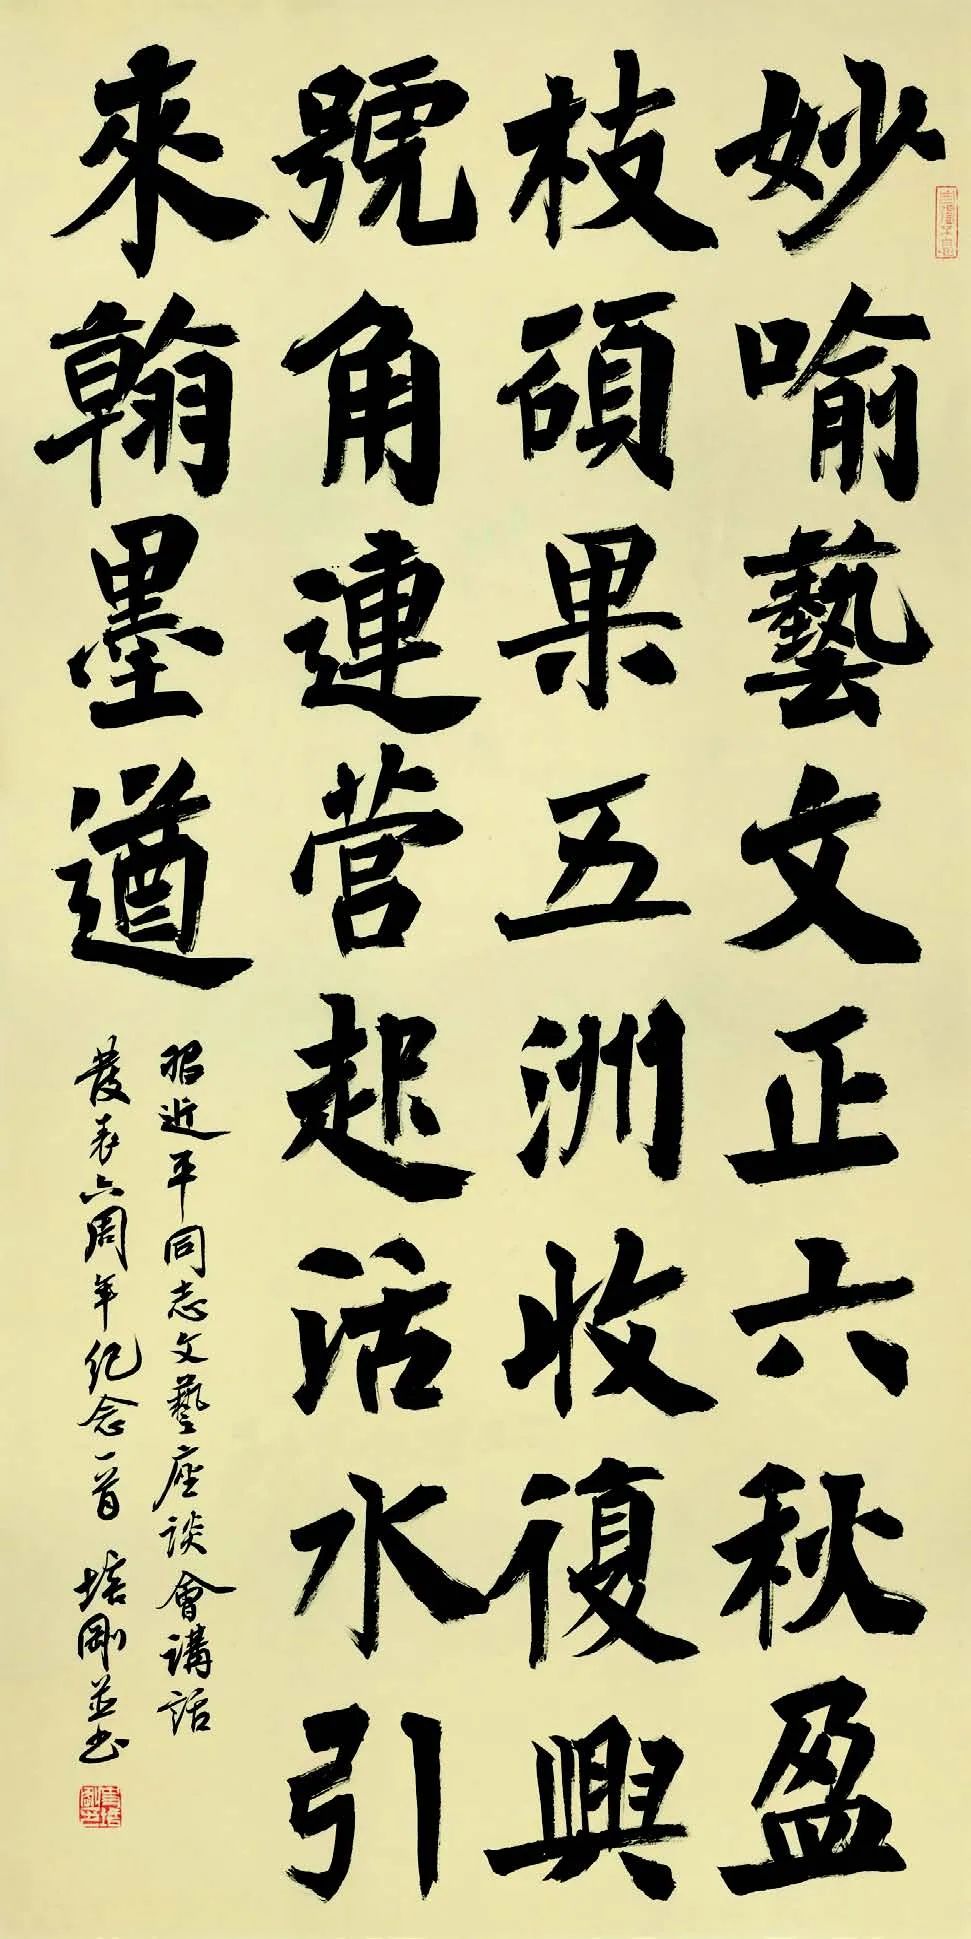 妙喻藝文正六秋盈
枝碩果五洲收復興
號角連營起活水引
來翰墨遒
習近平同志文藝座談會講話
發表六周年纪念一首 培剛並书